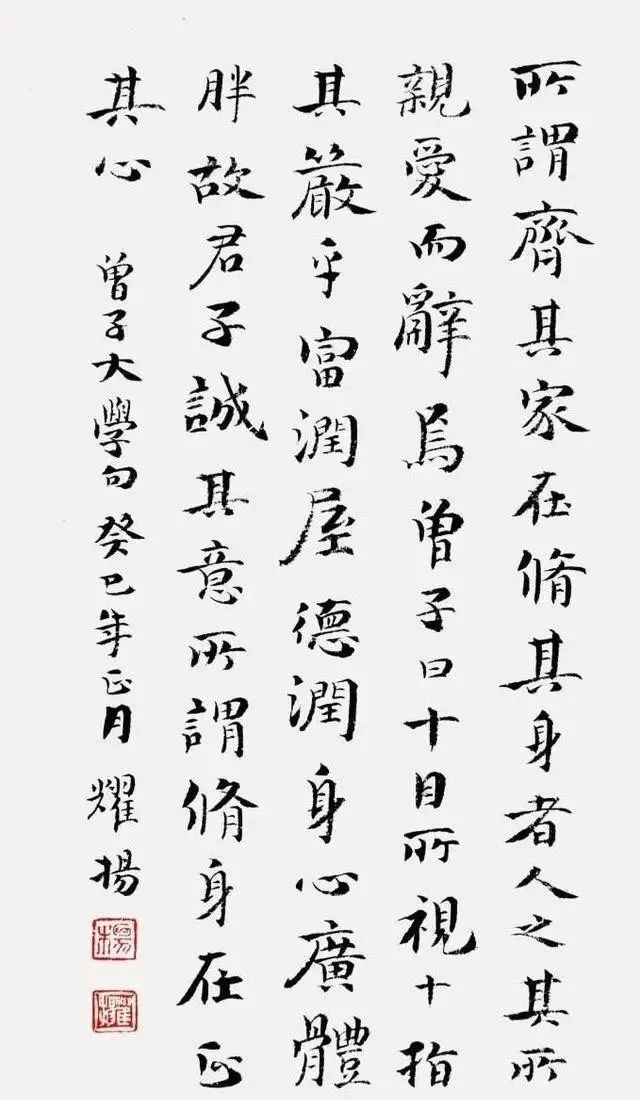 所謂齊其家在脩其身者人之其所
親愛而辭焉曽子曰十目所視十指
其嚴乎富潤屋德潤身心廣體
胖故君子誠其意所謂脩身在正
其心
曽子大學句癸巳年正月耀揚